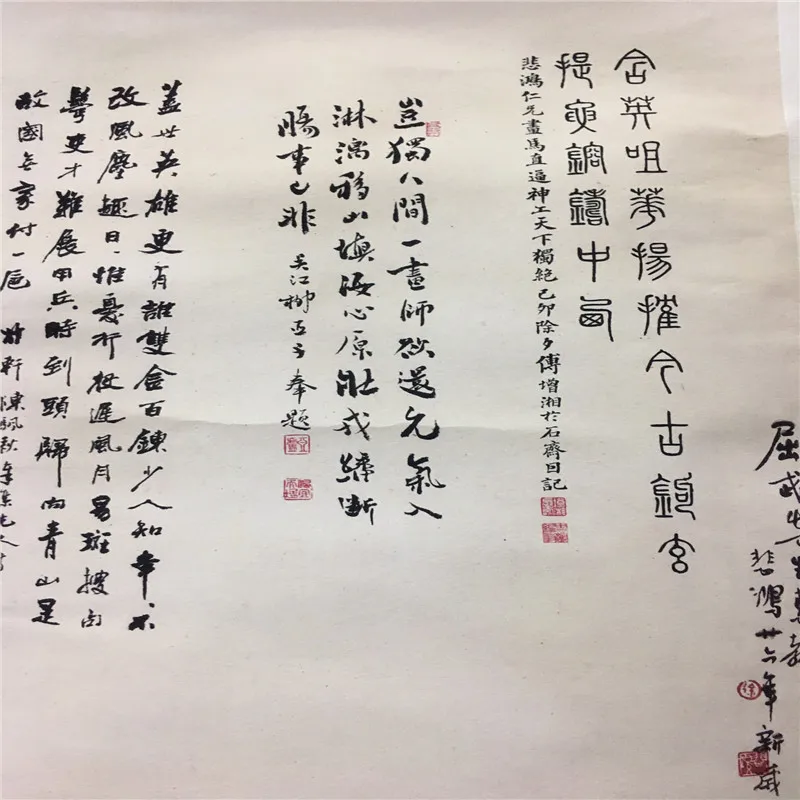 屈武先生
悲鴻廿六年新歲
含英咀華揚搉今古鉤玄
提要鎔鑄中西
悲鴻仁兄畫馬直逼神工天下獨絕己卯除夕傅增湘於石齋日記
豈獨人間一畫師欲還元氣入
淋漓移山填海心原壯成緯斷
腸事已非 吳江柳亞子奉題
蓋世英雄更有誰雙金百鍊少人知年不
改風塵趣日惟憂行役遲風月易斑搜句
鬢更才難展用兵時到頭歸向青山是
故國無家付一卮